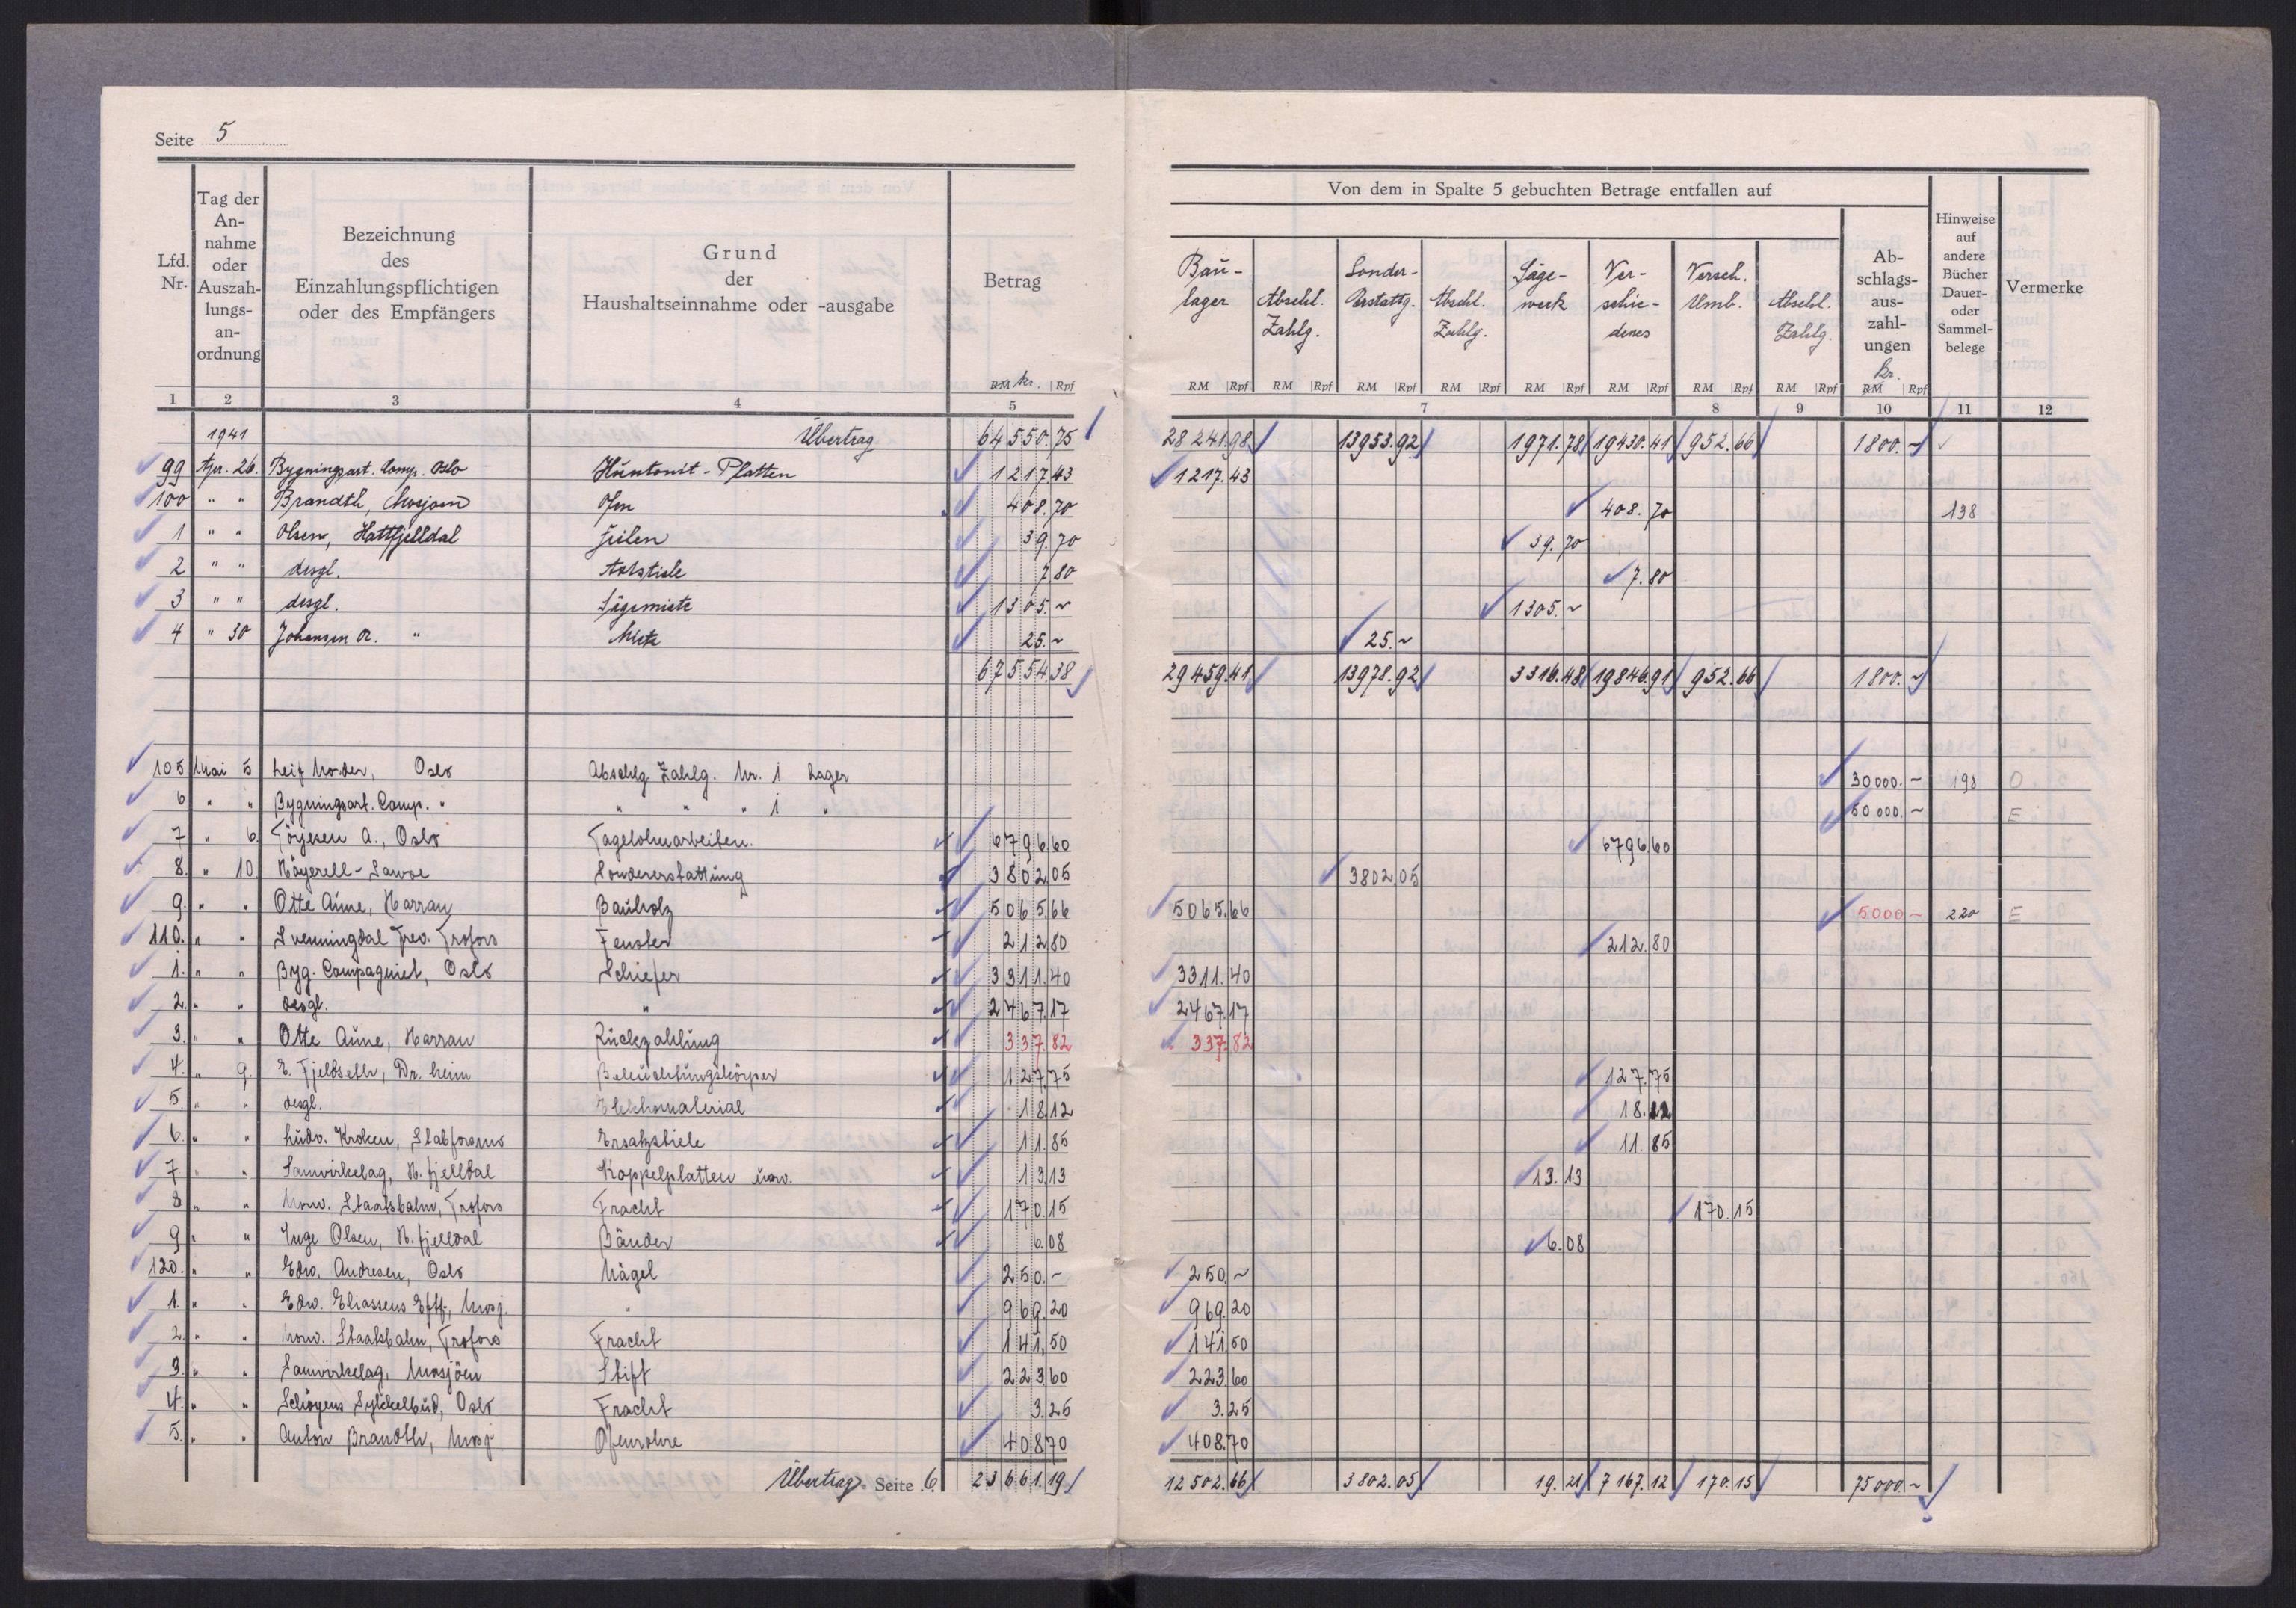 Seite 5
Lfd. Nr. | Tag der Annahme oder Auszahlungsanordnung | Bezeichnung des Einzahlungspflichtigen oder des Empfängers | Grund der Haushaltseinnahme oder -ausgabe | Betrag
Von dem in Spalte 5 gebuchten Betrage entfallen auf
Baulager | Abschl. Zahlg. | Sonder-Erstattg. | Abschl. Zahlg. | Sägewerk | Verschiedenes | Versch. Umb. | Abschl. Zahlg. | Abschlagsauszahlungen kr. | Hinweise auf andere Bücher Dauer- oder Sammelbelege | Vermerke
RM kr. Rpf | RM Rpf | RM Rpf | RM Rpf | RM Rpf | RM Rpf | RM Rpf | RM Rpf | RM Rpf | RM Rpf
1 2 3 4 5 7 8 9 10 11 12
1941 Übertrag 64550.75 28241.98 13953.92 1971.78 19430.41 952.66 1800.-
99 Apr. 26. Bygningsart. Comp. Oslo Huntonit-Platten 1217.43 1217.43
100 " " Brandth, Mosjoen Ofen 408.70 408.70 138
1 " " Olsen, Hattfjelldal Feilen 39.70 39.70
2 " " desgl. Axtstiele 7.80 7.80
3 " " desgl. Sägemiete 1305.~ 1305.~
4 " 30 Johansen O. " Miete 25.~ 25.~
67554.38 29459.41 13978.92 3316.48 19846.91 952.66 1800.~
105 Mai 5 Leif Moder, Oslo Abschlg. Zahlg. Nr. 1 Lager 30000.- 198 O
6 " " Bygningsart. Comp. " " " " 1 " 50000.- E
7 " 6. Törjesen A., Oslo Tagelohnarbeiten. 6796.60 6796.60
8. " 10 Sondererstattung 3802.05 3802.05
9. " " Otte Aune, Harran Bauholz 5065.66 5065.66 5000- 220 E
110. " " Svenningdal Trev. Trofors Fenster 212.80 212.80
1. " " Byg. Compagniet, Oslo Schiefer 3311.40 3311.40
2. " " desgl. " 2467.17 2467.17
3. " " Otte Aune, Harran Rückzahlung 337.82 337.82
4. " 9. E. Fjeldseth, Dr. heim Beleuchtungskörper 127.75 127.75
5. " " desgl. Elektromaterial 18.12 18.12
6. " " Ludv. Kroken, Stabforsmo Ersatzstiele 11.85 11.85
7 " " Samvirkelag, H. fjelldal Koppelplatten usw. 13.13 13.13
8 " " Norw. Staatsbahn, Trofors Fracht 170.15 170.15
9 " " Inge Olsen, H. fjelldal Bänder 6.08 6.08
120. " " Edw. Andresen, Oslo Nägel 250.- 250.~
1. " " Edw. Eliassens Eftf., Mosj. " 969.20 969.20
2. " " Norw. Staatsbahn, Trofors Fracht 141.50 141.50
3. " " Samvirkelag, Mosjöen Stift 223.60 223.60
4. " " Oslo Fracht 3.25 3.25
5. " " Anton Brandth, Mosj. Ofenrohre 408.70 408.70
Übertrag Seite 6. 23661.19 12502.66 3802.05 19.21 7167.12 170.15 75000.~